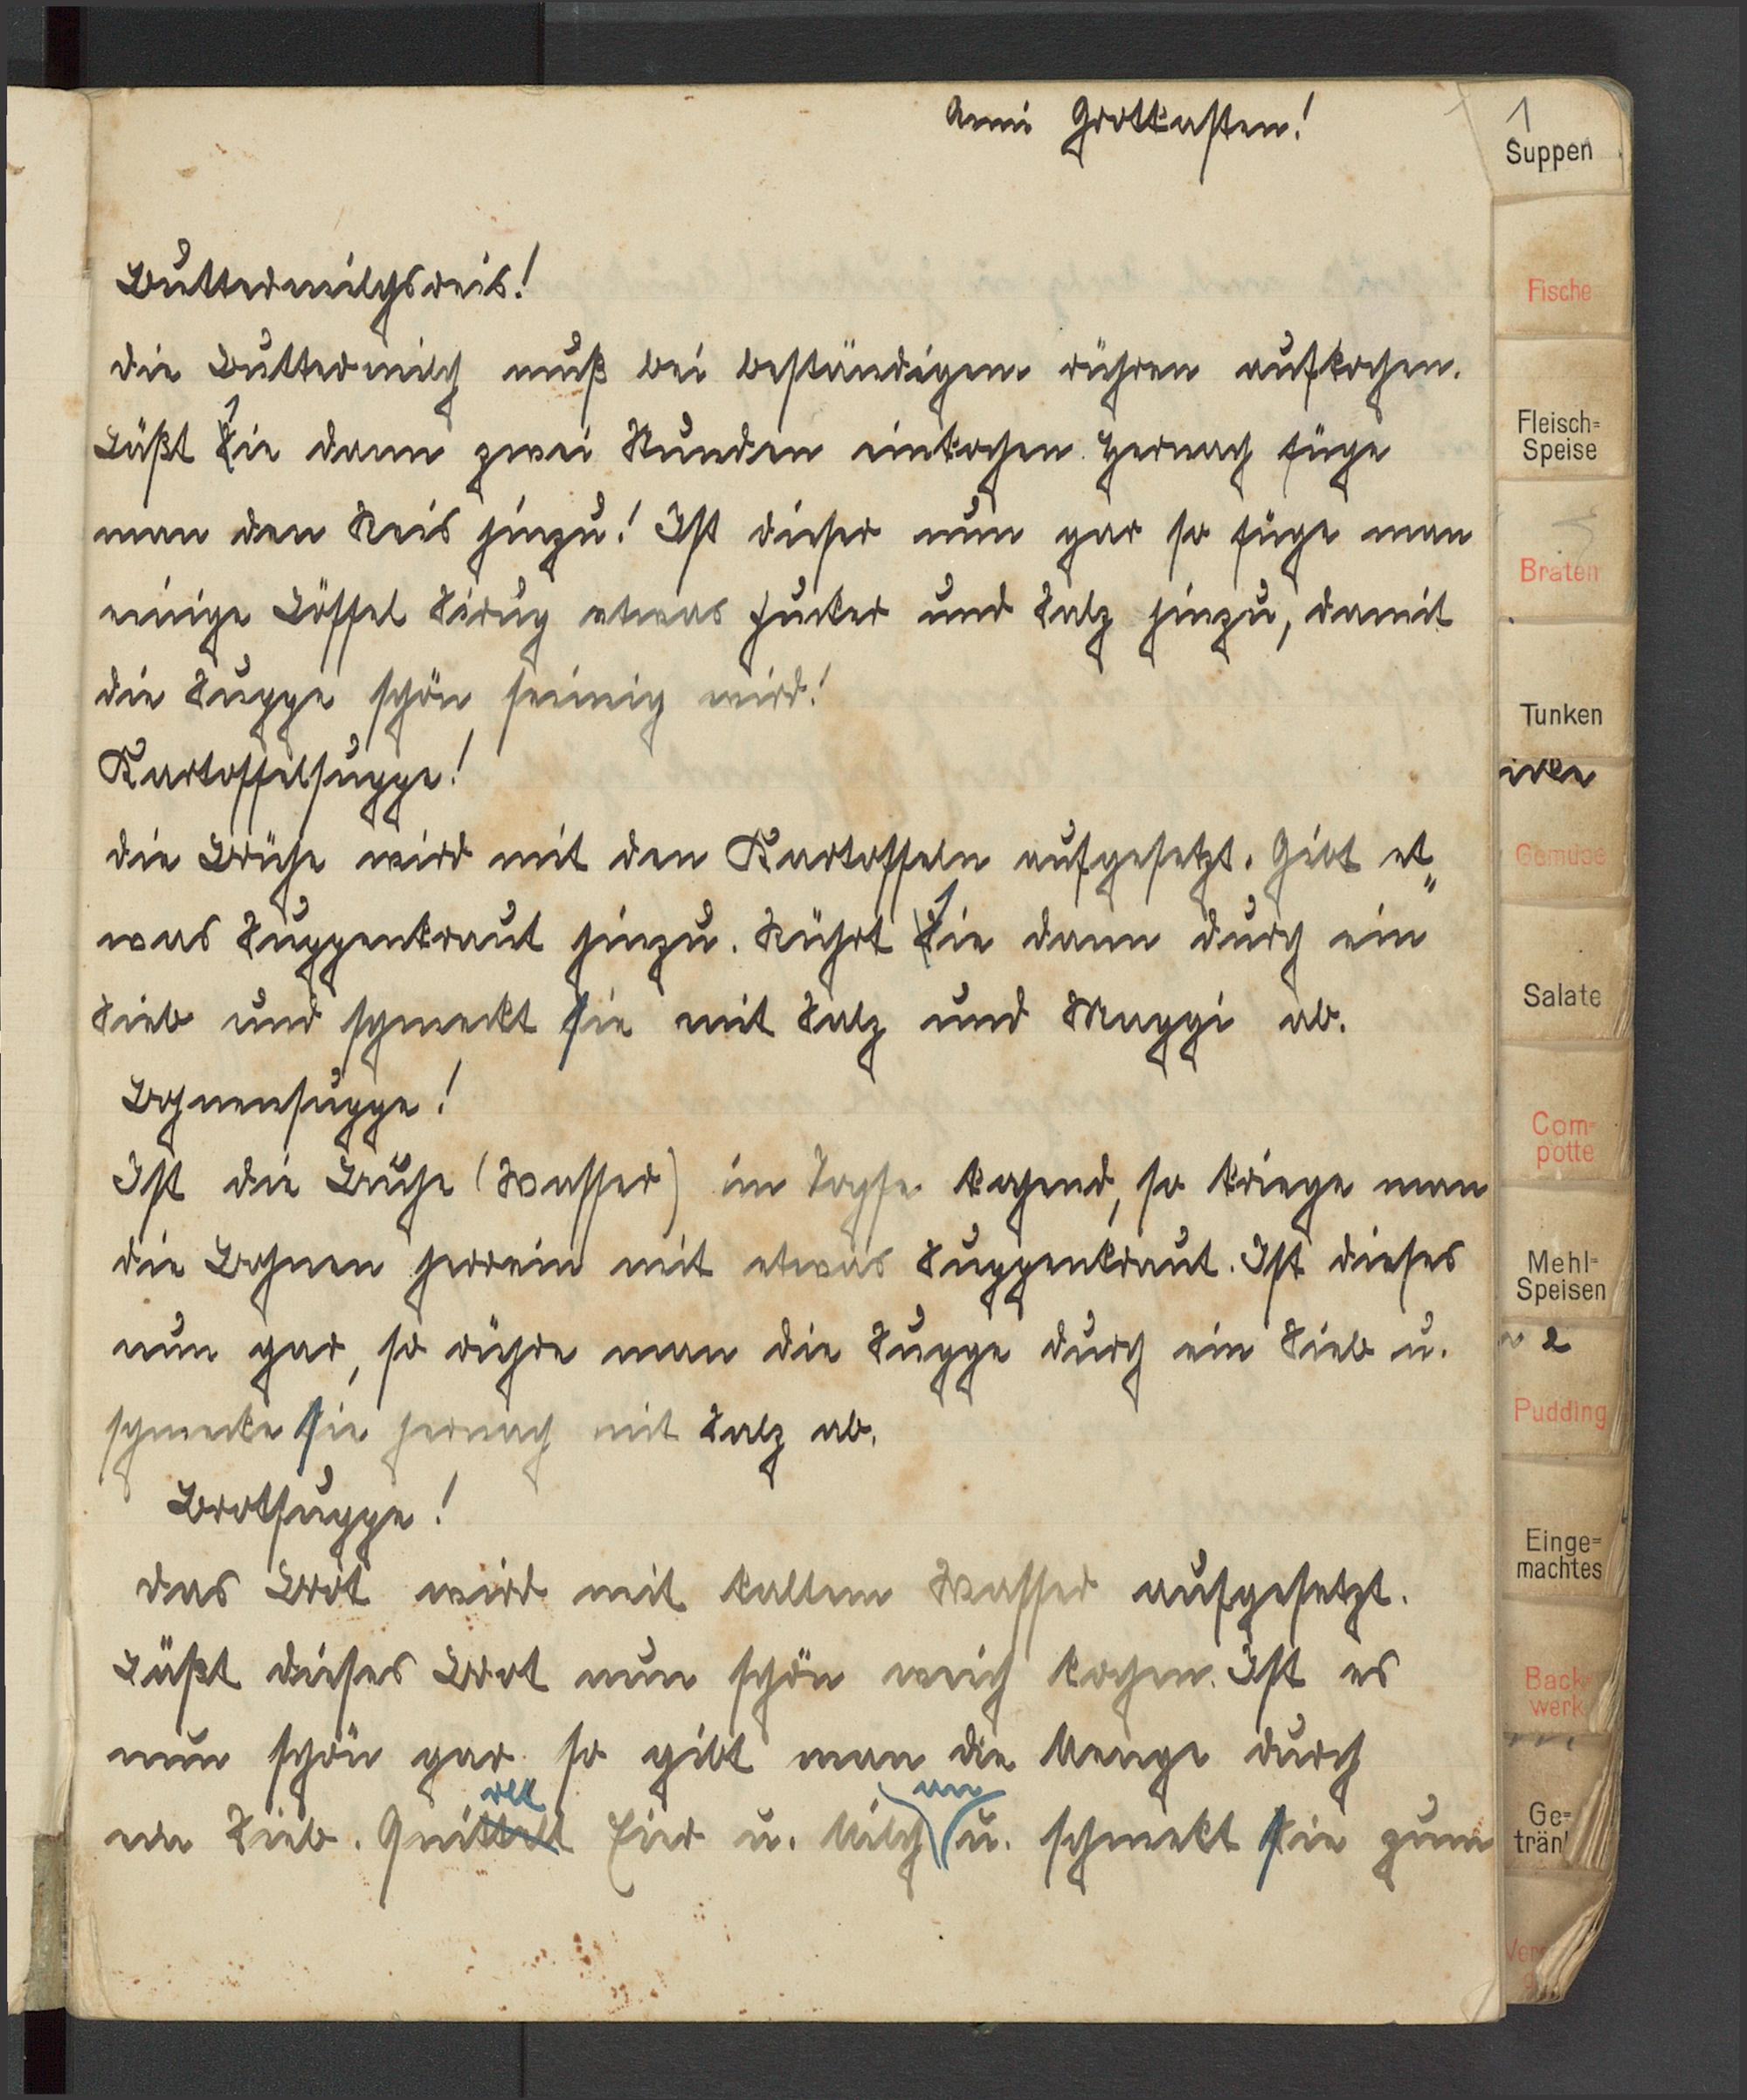 Anni Grottkasten!
1
Suppen
Buttermilchsreis!
Fische
die Buttermilch muß bei beständigem rühren aufkochen.
Läßt sie dann zwei Stunden einkochen. Hernach füge
Fleisch=
Speise
man den Reis hinzu! Ist dieser nun gar so füge man
Braten
einige Löffel Sirup etwas Zucker und Salz hinzu, damit
die Suppe schön seimig wird!
Tunken
Kartoffelsuppe!
die Brühe wird mit den Kartoffeln aufgesetzt. Gibt et„
Gemüse
was Suppenkraut hinzu. Rührt sie dann durch ein
Sieb und schmeckt sie mit Salz und Maggi ab.
Salate
Bohnensuppe!
Com=
potte
Ist die Brühe (Wasser) im Topfe kochend, so kriege man
die Bohnen herrein mit etwas Suppenkraut. Ist dieses
Mehl=
Speisen
nun gar, so rühre man die Suppe durch ein Sieb u.
schmecke sie hernach mit Salz ab.
Pudding
Brotsuppe!
Einge=
machtes
das Brot wird mit kaltem Wasser aufgesetzt.
Läßt dieses Brot nun schön weich kochen. Ist es
Back-
werk
nun schön gar so gibt man die Menge durch
ein Sieb. Quittelt Eier u. Milch an u. schmekt sie zum
Ge=
tränk